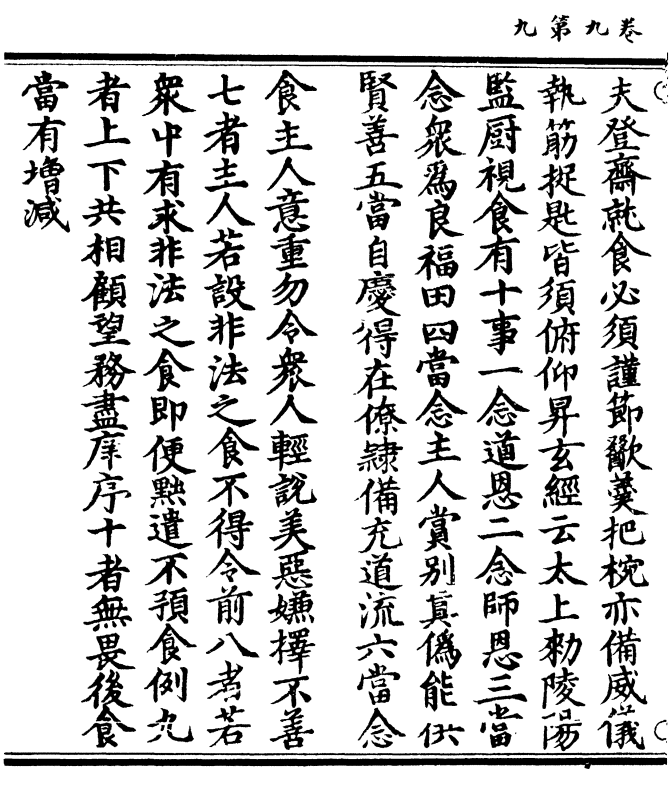 卷九第九
夫登齋就食必須謹節歠羹把椀亦備威儀
執筯捉匙皆須俯仰昇玄經云太上勑陵陽
監厨視食有十事一念道恩二念師恩三當
念衆爲良福田四當念主人賞別真僞能供
賢善五當自慶得在僚隷備充道流六當念
食主人意重勿令衆人輕說美惡嫌擇不善
七者主人若設非法之食不得令前八者若
衆中有求非法之食即便黜遣不預食例九
者上下共相顧望務盡庠序十者無畏後食
當有增減